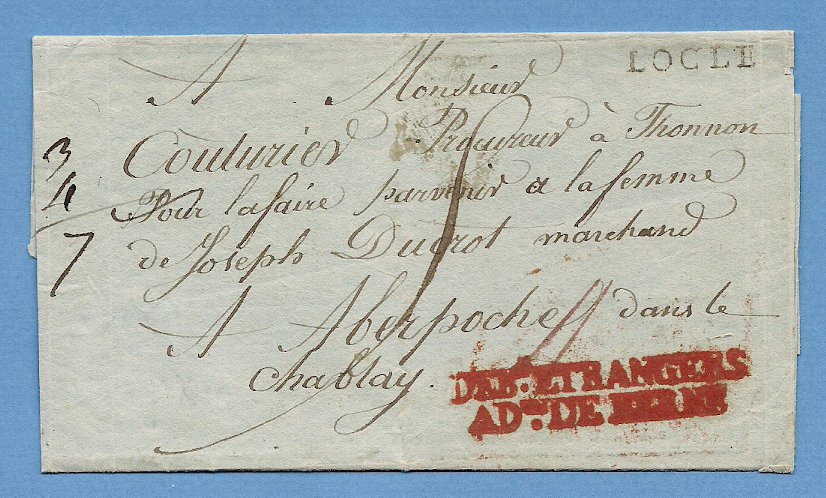 LOCLE
A Monsieur
Couturier Procureur à Thonnon
Pour la faire parvenir a la femme
de Joseph Ducrot marchand
A Aberpoche dans le
Chablay.
3
4
7
DEB. ETRANGERS
AD.on DE BERNE